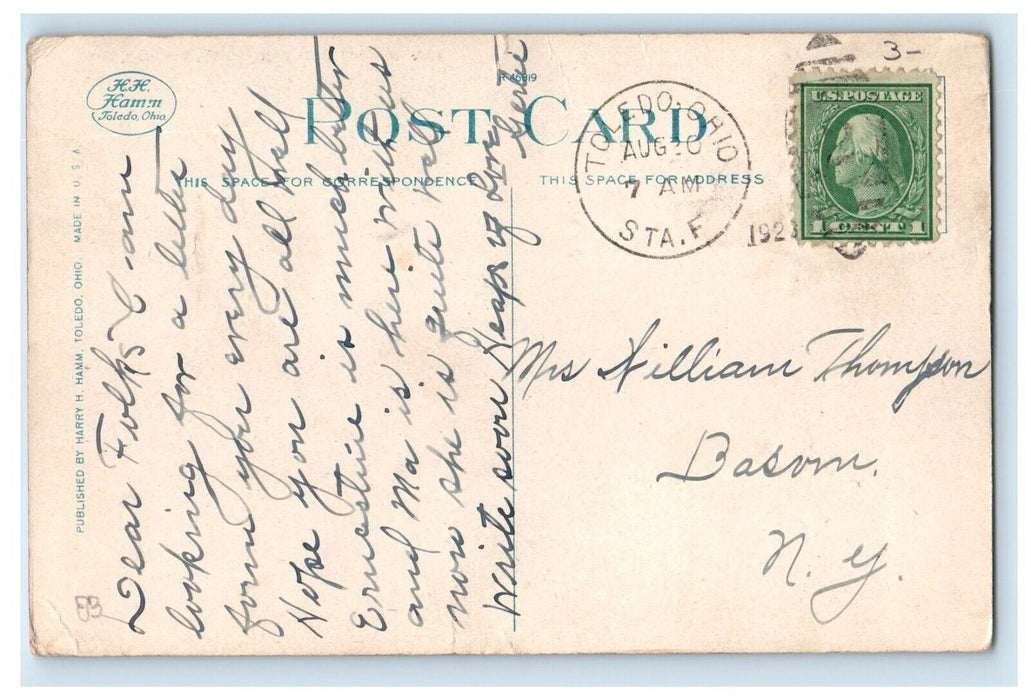 H.H.
Hamm
Toledo, Ohio
R-46819
3-
POST CARD
THIS SPACE FOR CORRESPONDENCE
THIS SPACE FOR ADDRESS
TOLEDO, OHIO
AUG 20
7 AM
STA. F
192
U.S. POSTAGE
1 CENT 1
PUBLISHED BY HARRY H. HAMM, TOLEDO, OHIO. MADE IN U.S.A.
Dear Folks I am
looking for a letter
form you every day
Hope you are all well
Ernestine is much better
and Ma is here with us
now she is quite well
write soon Heaps of love
Mrs William Thompson
Basom.
N. Y.